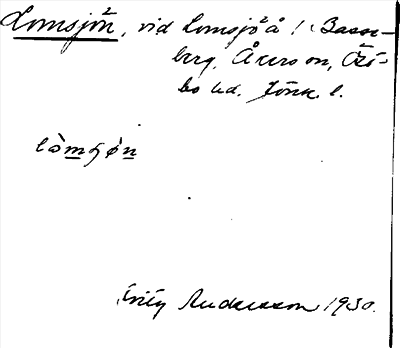 Lomsjön, vid Lomsjöå i Basse-
berg, Åkers sn, Öst-
bo hd. Jönk. l.
lòmʃøn
Andersson 1930.